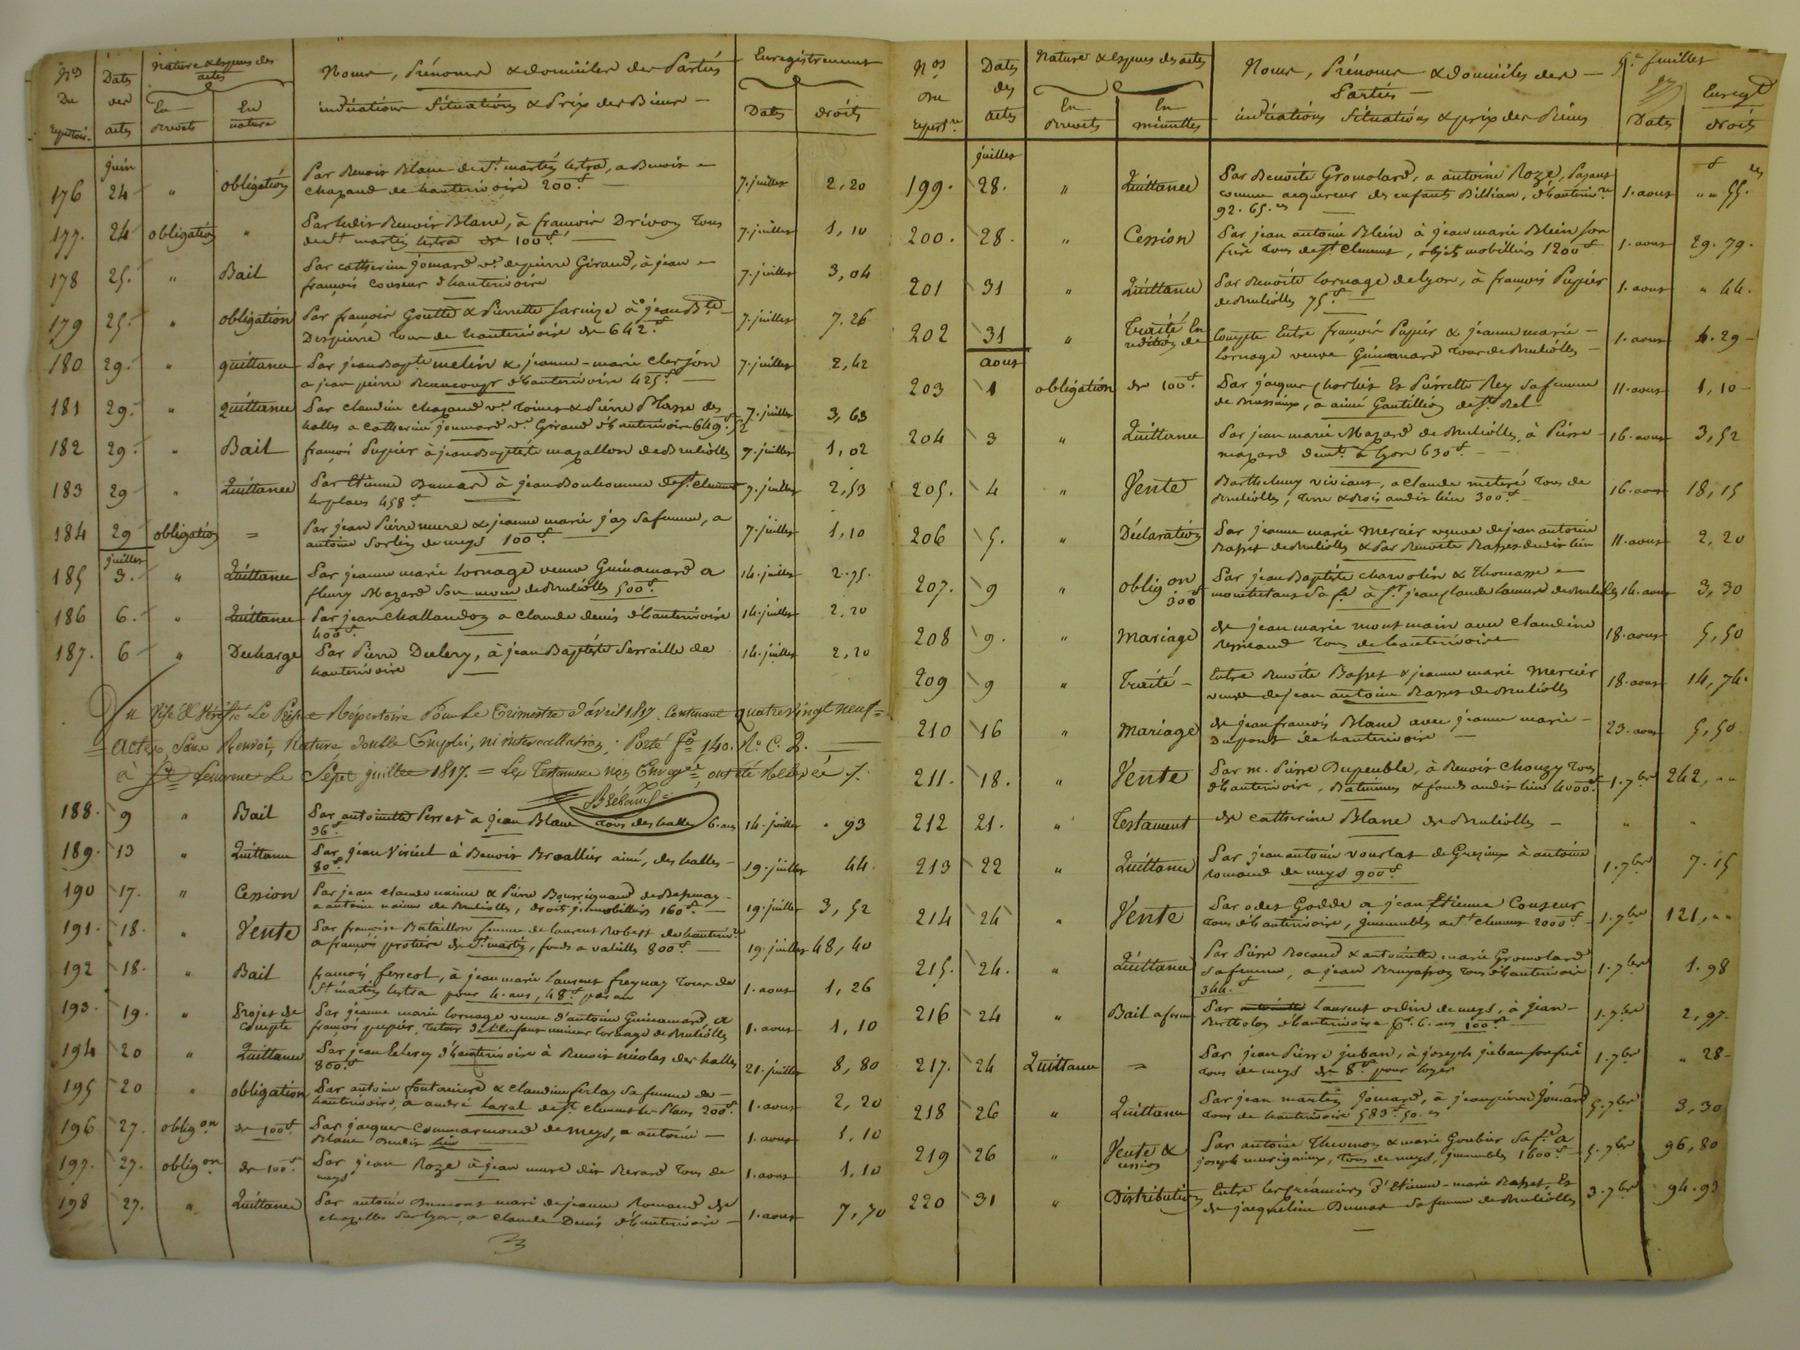 Nos Du Répertoire. | Dates des actes | Nature & espèces des actes | Noms, Prénoms & domiciles des Parties | Enregistrement
En Brevets | En nature | indications Situations & Prix des Biens — | Dates | droits
juin
176 24 " obligation Par Benoit Blanc de St. martin lestra, a Benoit
chazaud de hauterivoire 200f. — 7. juillet 2,20
177. 24 obligation " Par ledit Benoit Blanc, à francois Drivon Tous
de St martin lestra de 100f. — 7. juillet 1,10
178 25. " Bail Par catherine jomard ve. de pierre Giraud, à jean
francois couseur d'hauterivoire 7. juillet 3,04
179 25. " obligation Par francois Goutte & Pierrette à jean Bte
Despierre Tous de hauterivoire de 642f. 7. juillet 7.26
180 29. " quittance Par jean Bapte melin & jeanne-marie clerjon
a jean pierre d'hauterivoire 425f. — 7. juillet 2,42
181 29. " Quittance Par claudine chazaud ve. & Pierre des
halles a catherine joumard ve. Giraud d'hauterivoire 649f. 7. juillet 3,63
182 29. " Bail francois Pupier à jean Baptiste mazallon de Brulliolles 7. juillet 1,02
183 29 " Quittance Par Etienne Dumas à jean Bonhomme de St. clement
les places 458f. 7. juillet 2,53
184 29 obligation = Par jean Pierre mure & jeanne marie jay Sa femme, a
antoine de meys 100f. 7. juillet 1,10
juillet
185 3. " Quittance Par jeanne marie Lornage veuve Guinamard a
fleury Mazard de Brulliolles 500f. 14. juillet 2.75.
186 6. " Quittance Par jean challandon a claude denis d'hauterivoire
400f. 14. juillet 2,20
187. 6 " Decharge Par Pierre à jean Baptiste Serraille de
hauterivoire 14. juillet 2,20
Vu Le Présent Répertoire Pour Le Trimestre d'avril 1817. Contenant quatre vingt neuf =
= actes, Sans Renvoi, Rature, double Emploi, ni intercallation; Porté fo 140. Ro. C. 2.
à Le Sept juillet 1817. = Les Testamens non ont été
188. 9 " Bail Par antoinette Perret à jean Blanc Tous des halles 6. ans
36f. 14. juillet " 93
189. 13 " Quittance Par jean Viricel à Benoit ainé, des halles —
80f. 19. juillet 44.
190 17. " Cession Par jean claude & Pierre
a antoine de Brulliolles, droits immobiliers 160f. 19. juillet 3,52
191. 18. " Vente Par francoise Bataillon femme de laurent Robert de hauterivre
a francois protière de St. martin, fonds a valeille 800f. 19. juillet 48,40
192 18. " Bail francois ferreol, à jean marie laurent freynay Tous de
St martin lestra pour 4. ans, 48f. par an 1. aout 1,26
193. 19. " Projet de compte Par jeanne marie lornage veuve d'antoine Guinamard, a
francois pupier, tuteur de L'enfant mineur lornage de Brulliolles 1. aout 1,10
194 20 " Quittance Par jean d'hauterivoire à Benoit nicolas des halles
800f. 21. juillet 8,80
195 20 " obligation Par antoine fontaniere & claudine ferlay Sa femme de
hauterivoire, a andré Laval de St. clement les Places 200f. 1. aout 2,20
196 27. obligon de 100f. Par jacques Commarmond de Meys, a antoine
Blanc dudit lieu 1. aout 1,10
197. 27. obligon de 100f. Par jean Roze à jean mure dit Berard Tous de
meys 1. aout 1,10
198 27. " Quittance Par antoine Dumont mari de jeanne Romand de
chazelles Sur Lyon, a claude Denis d'hauterivoire — 1. aout 7,70
Nos Du Répertre | Dates des actes | Nature & espèces des actes | Noms, Prénoms & domiciles des — Parties — | juillet
En Brevets | En minuttes | indications Situations & prix des Biens | Dates | Enregt droits
juillet
199. 28. " Quittance Par Benoite Gromolard, a antoine Roze, Payant
comme acquereur des enfants Billian, d'hauterivre
92. 65.es 1. aout " " 55.
200. 28. " Cession Par jean antoine Blein à jean marie Blein Son
frère Tous de St. clement, objets mobilliers 1200f 1. aout 29.79.
201 31 " Quittance Par Benoite Lornage de Lyon, à francois Pupier
de Brulliolles 75f. 1. aout " 44.
202 31 " Traité En reddition de Compte Entre francois Pupier & jeanne marie —
Lornage veuve Guinamard Tous de Brulliolles — 1. aout 4.29
aout
203 1 obligation de 100f. Par jacques & Pierrette Rey Sa femme
de Brussieux, a aimé Gantillion de St. Bel 11. aout 1,10
204 3 " Quittance Par jean marie Mazard de Brulliolles, à Pierre
mazard demt. a Lyon 630f. 16. aout 3,52
205. 4 " Vente Barthelemy viviant, a claude meteré Tous de
Brulliolles, Terre & Bois audit lieu 300f. 16. aout 18,15
206 5. " Déclaration Par jeanne marie Mercier veuve de jean antoine
Basset de Brulliolles & Par Benoite Basset dudit lieu 11. aout 2,20
207. 9 " obligon 300f Par jean Baptiste charvolin & Thomasse
Sa fe. à Sr. jean claude de Brulliolles 14. aout 3,30
208 9. " Mariage de jean marie montmain avec claudine
Tous de hauterivoire 18. aout 5,50
209 9 " Traité — Entre Benoite Basset & jeanne marie Mercier
veuve de jean antoine Basset de Brulliolles 18. aout 14,74.
210 16 " Mariage de jean francois Blanc avec jeanne marie
Dupont de hauterivoire 23. aout 5,50
211. 18. " Vente Par m. Pierre Dupeuble, à Benoit chouzy Tous
d'hauterivoire, Batimens & fonds audit lieu 4000f. 1. 7bre 242, " "
212 21. " Testament de catherine Blanc de Brulliolles — " "
213 22 " Quittance Par jean antoine vourlat de Grezieux à antoine
Romand de meys 900f. 1. 7bre 7.15
214 24 " Vente Par odet Godde a jean Etienne Couseur
Tous d'hauterivoire, jmmeubles a St. clement 2000f. 1. 7bre 121, " "
215. 24. " Quittance Par Pierre & antoinette marie Gromolard
Sa femme, a jean Tous d'hauterivoire
344.f 1. 7bre 1.98
216 24 " Bail a ferme Par laurent odin de meys, à jean
Bertholon d'hauterivoire pr. 6. ans 100f. 1. 7bre 2,97.
217. 24 Quittance = Par jean Pierre juban, à joseph juban Son frère
Tous de meys de 8f. pour loyer 1. 7bre " 28
218 26 " Quittance Par jean martin Jomard, à jean pierre Jomard
Tous de hauterivoire 583f. 50. es 5. 7bre 3,30
219 26 " Vente & cession Par antoine Thevenon & marie Goubier Sa fe. a
joseph Tous de meys, jmmeubles 1600f. 5. 7bre 96,80
220 31 " Distribution Entre les créanciers d'Etienne-marie Basset, Et
de jacqueline Dumas Sa femme de Brulliolles 3. 7bre 94.93